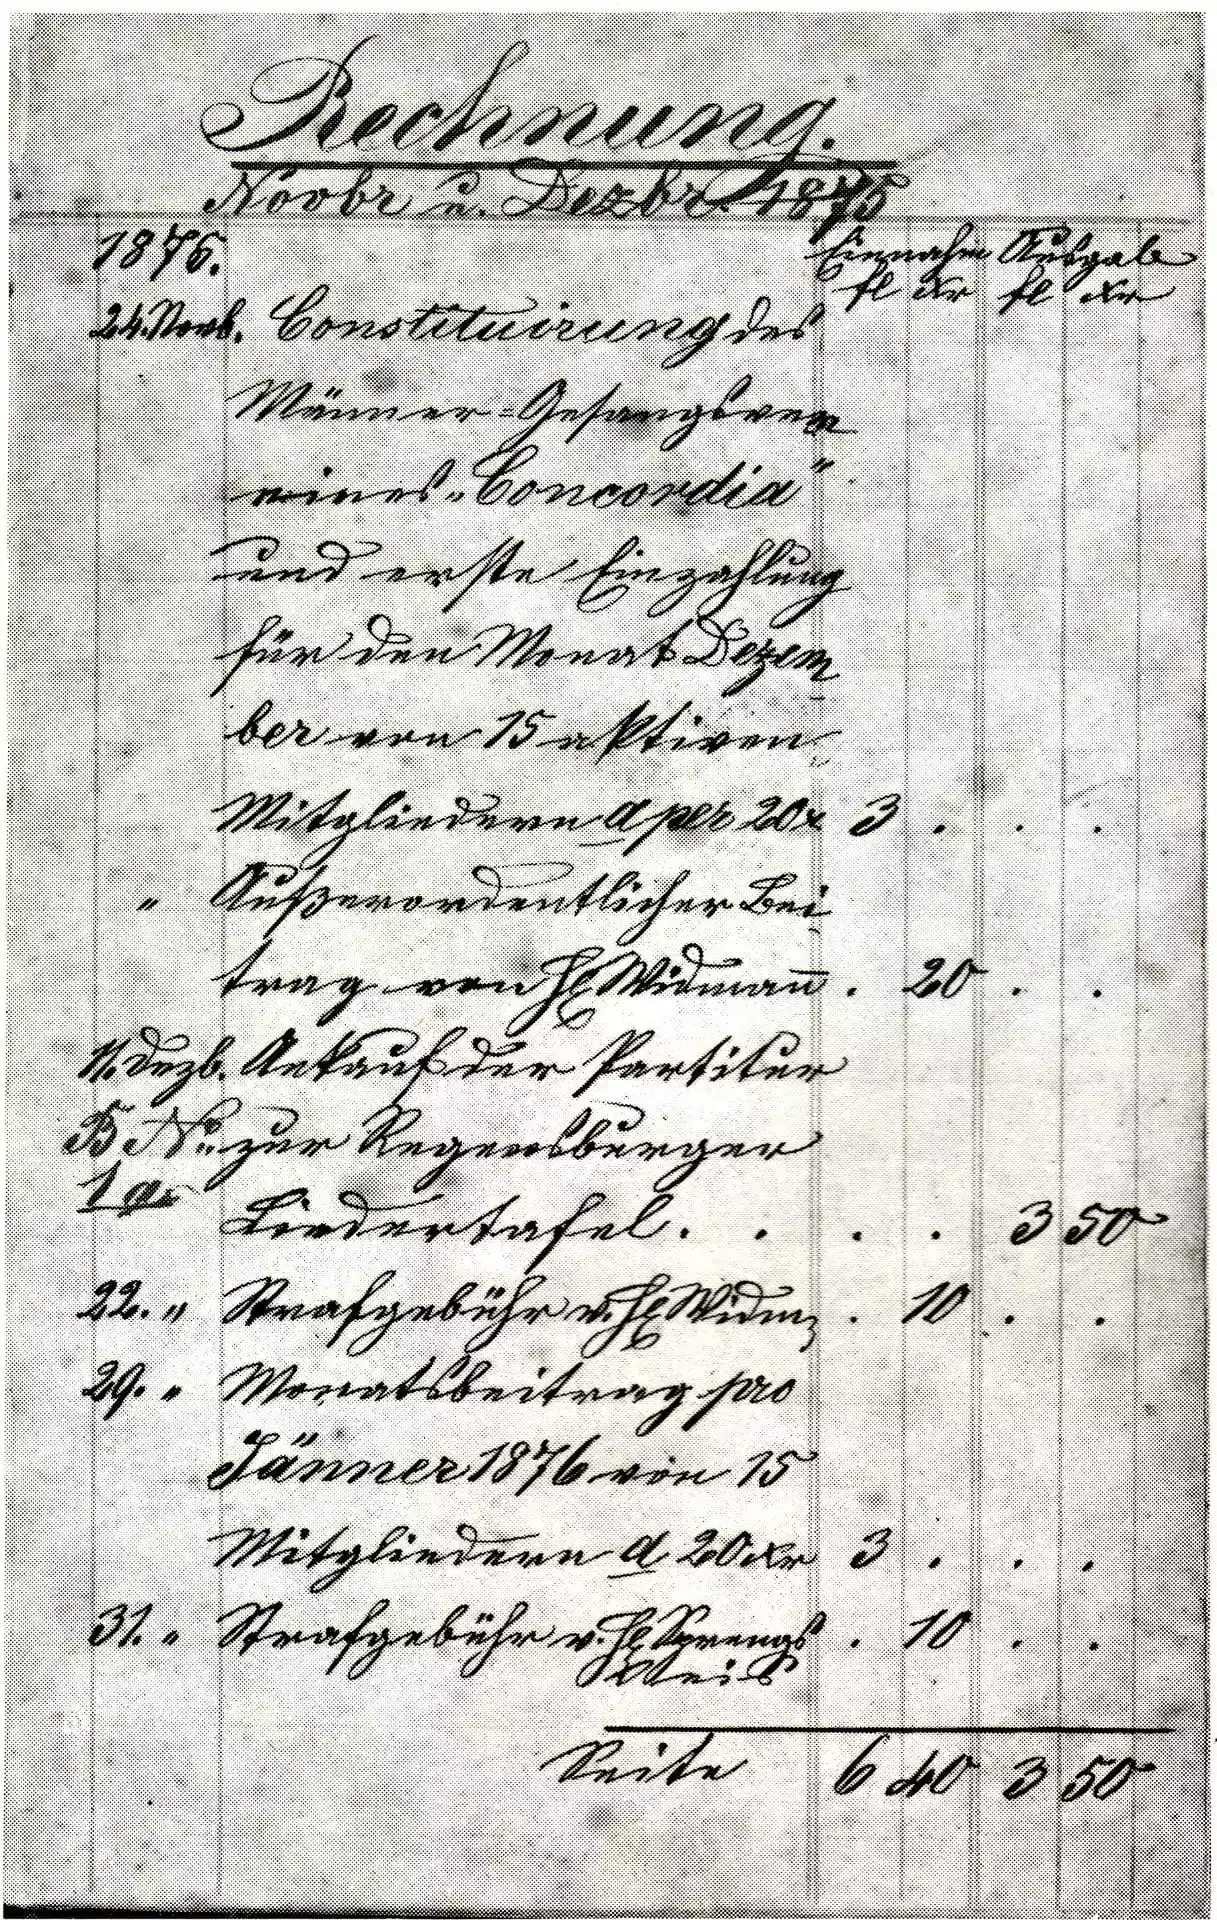 Rechnung.
Novbr u. Dezbr. 1875
1875. Einnahm Ausgab
fl xr fl xr
24. Novb. Constituirung des
Männer-Gesangsver
eines „Concordia“
und erste Einzahlung
für den Monat Dezem
ber von 15 aktiven
Mitgliedern a per 20x 3 . . .
" Außerordentlicher Bei
trag von H Widmann̄ . 20 . .
11. Dezb. Ankauf der Partitur
B No. zur Regensburger
1 a Liedertafel . . . . 3 50
22. " Strafgebühr v. H Widm . 10 . .
29. " Monatsbeitrag pro
Jänner 1876 von 15
Mitgliedern a 20xr 3 . . .
31. " Strafgebühr v. H Sprengs . 10 . .
Weis
Seite 6 40 3 50